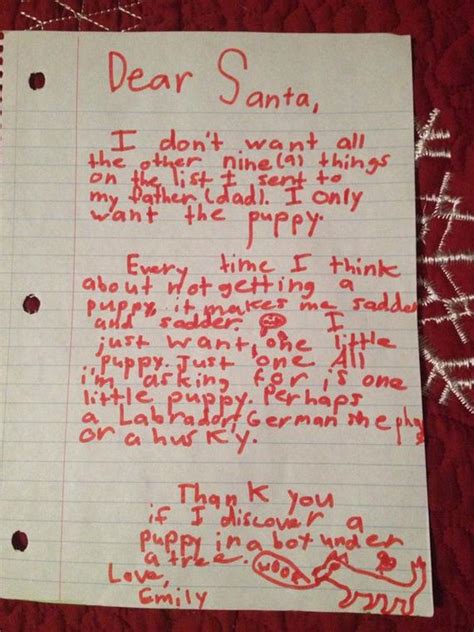 Dear Santa,
I don't want all
the other nine (9) things
on the list I sent to
my father (dad). I only
want the puppy.
Every time I think
about not getting a
puppy, it makes me sadder
and sadder. I
just want, one little
puppy. Just one. All
i'm asking for is one
little puppy. Perhaps
a Labrador, German shephar
or a husky.
Thank you
if I discover a
puppy in a box under
a tree. woof
Love,
Emily